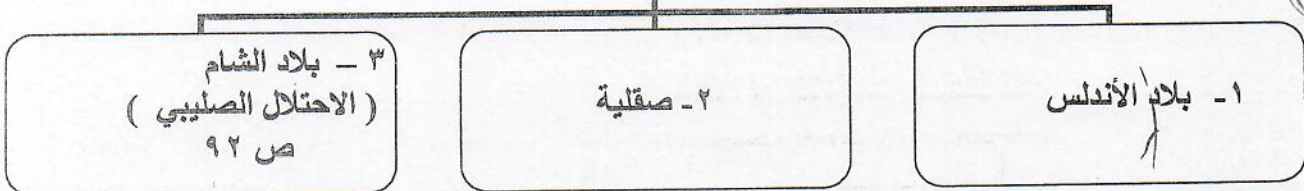 ١ - بلاد الأندلس
٢ - صقلية
٣ – بلاد الشام
( الاحتلال الصليبي )
ص ٩٢